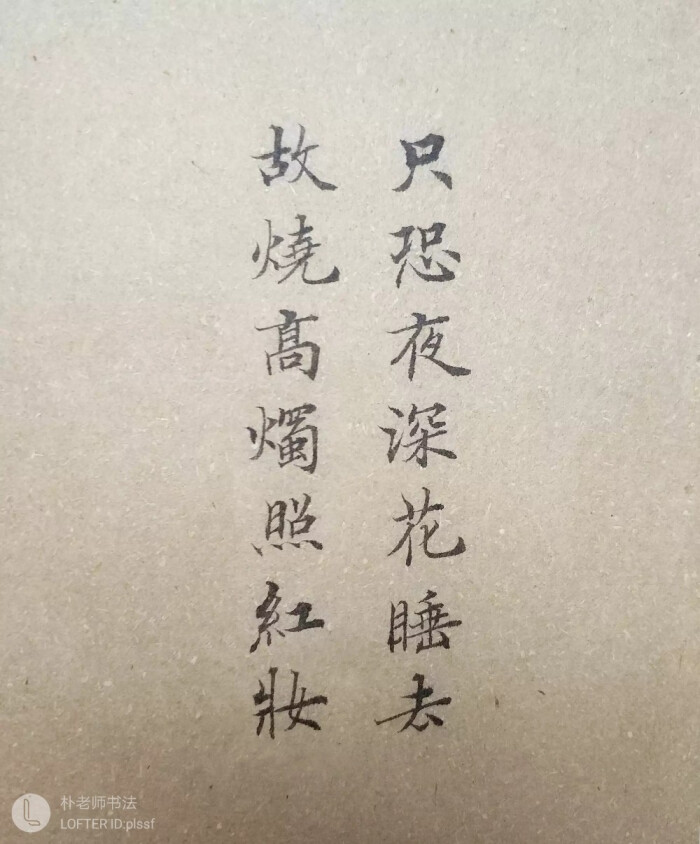 只恐夜深花睡去
故燒高燭照紅妝
朴老师书法
LOFTER ID:plssf